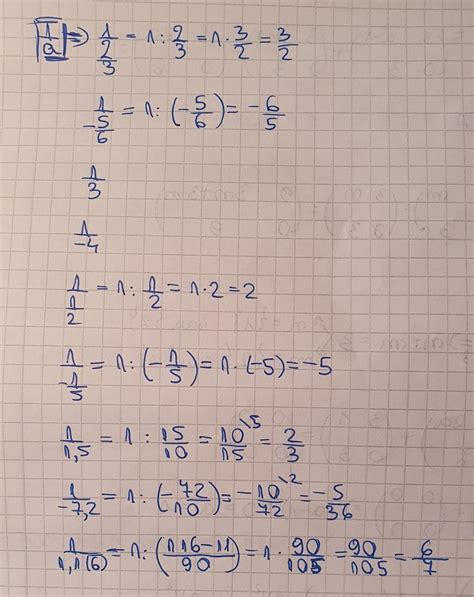 1/a ⇒ 1/(2/3) = 1 : 2/3 = 1 · 3/2 = 3/2
1/(-5/6) = 1 : (-5/6) = -6/5
1/3
1/-4
1/(1/2) = 1 : 1/2 = 1 · 2 = 2
1/(-1/5) = 1 : (-1/5) = 1 · (-5) = -5
1/1,5 = 1 : 15/10 = 10/15 \5 = 2/3
1/-7,2 = 1 : (-72/10) = -10/72 \2 = -5/36
1/1,1(6) = 1 : (116-11/90) = 1 · 90/105 = 90/105 = 6/7